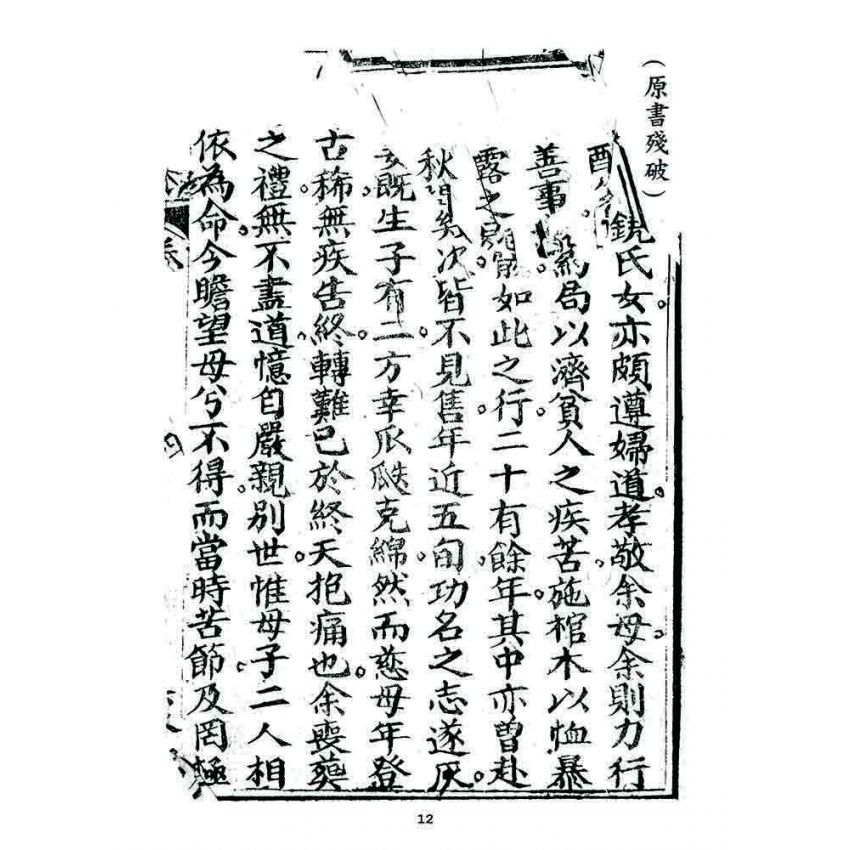 （原書殘破）
配 饒氏女亦頗遵婦道。孝敬余母。余則力行
善事。 藥局以濟貧人之疾苦。施棺木以恤暴
露之 如此之行。二十有餘年。其中亦曾赴
秋 矣。次皆不見售。年近五旬。功名之志遂灰。
既生子有二。方幸瓜瓞克綿。然而慈母年登
古稀。無疾告終。轉難已於終天抱痛也。余喪葬
之禮。無不盡道。憶自嚴親別世。惟母子二人相
依為命。今瞻望母兮不得。而當時苦節及罔極
12